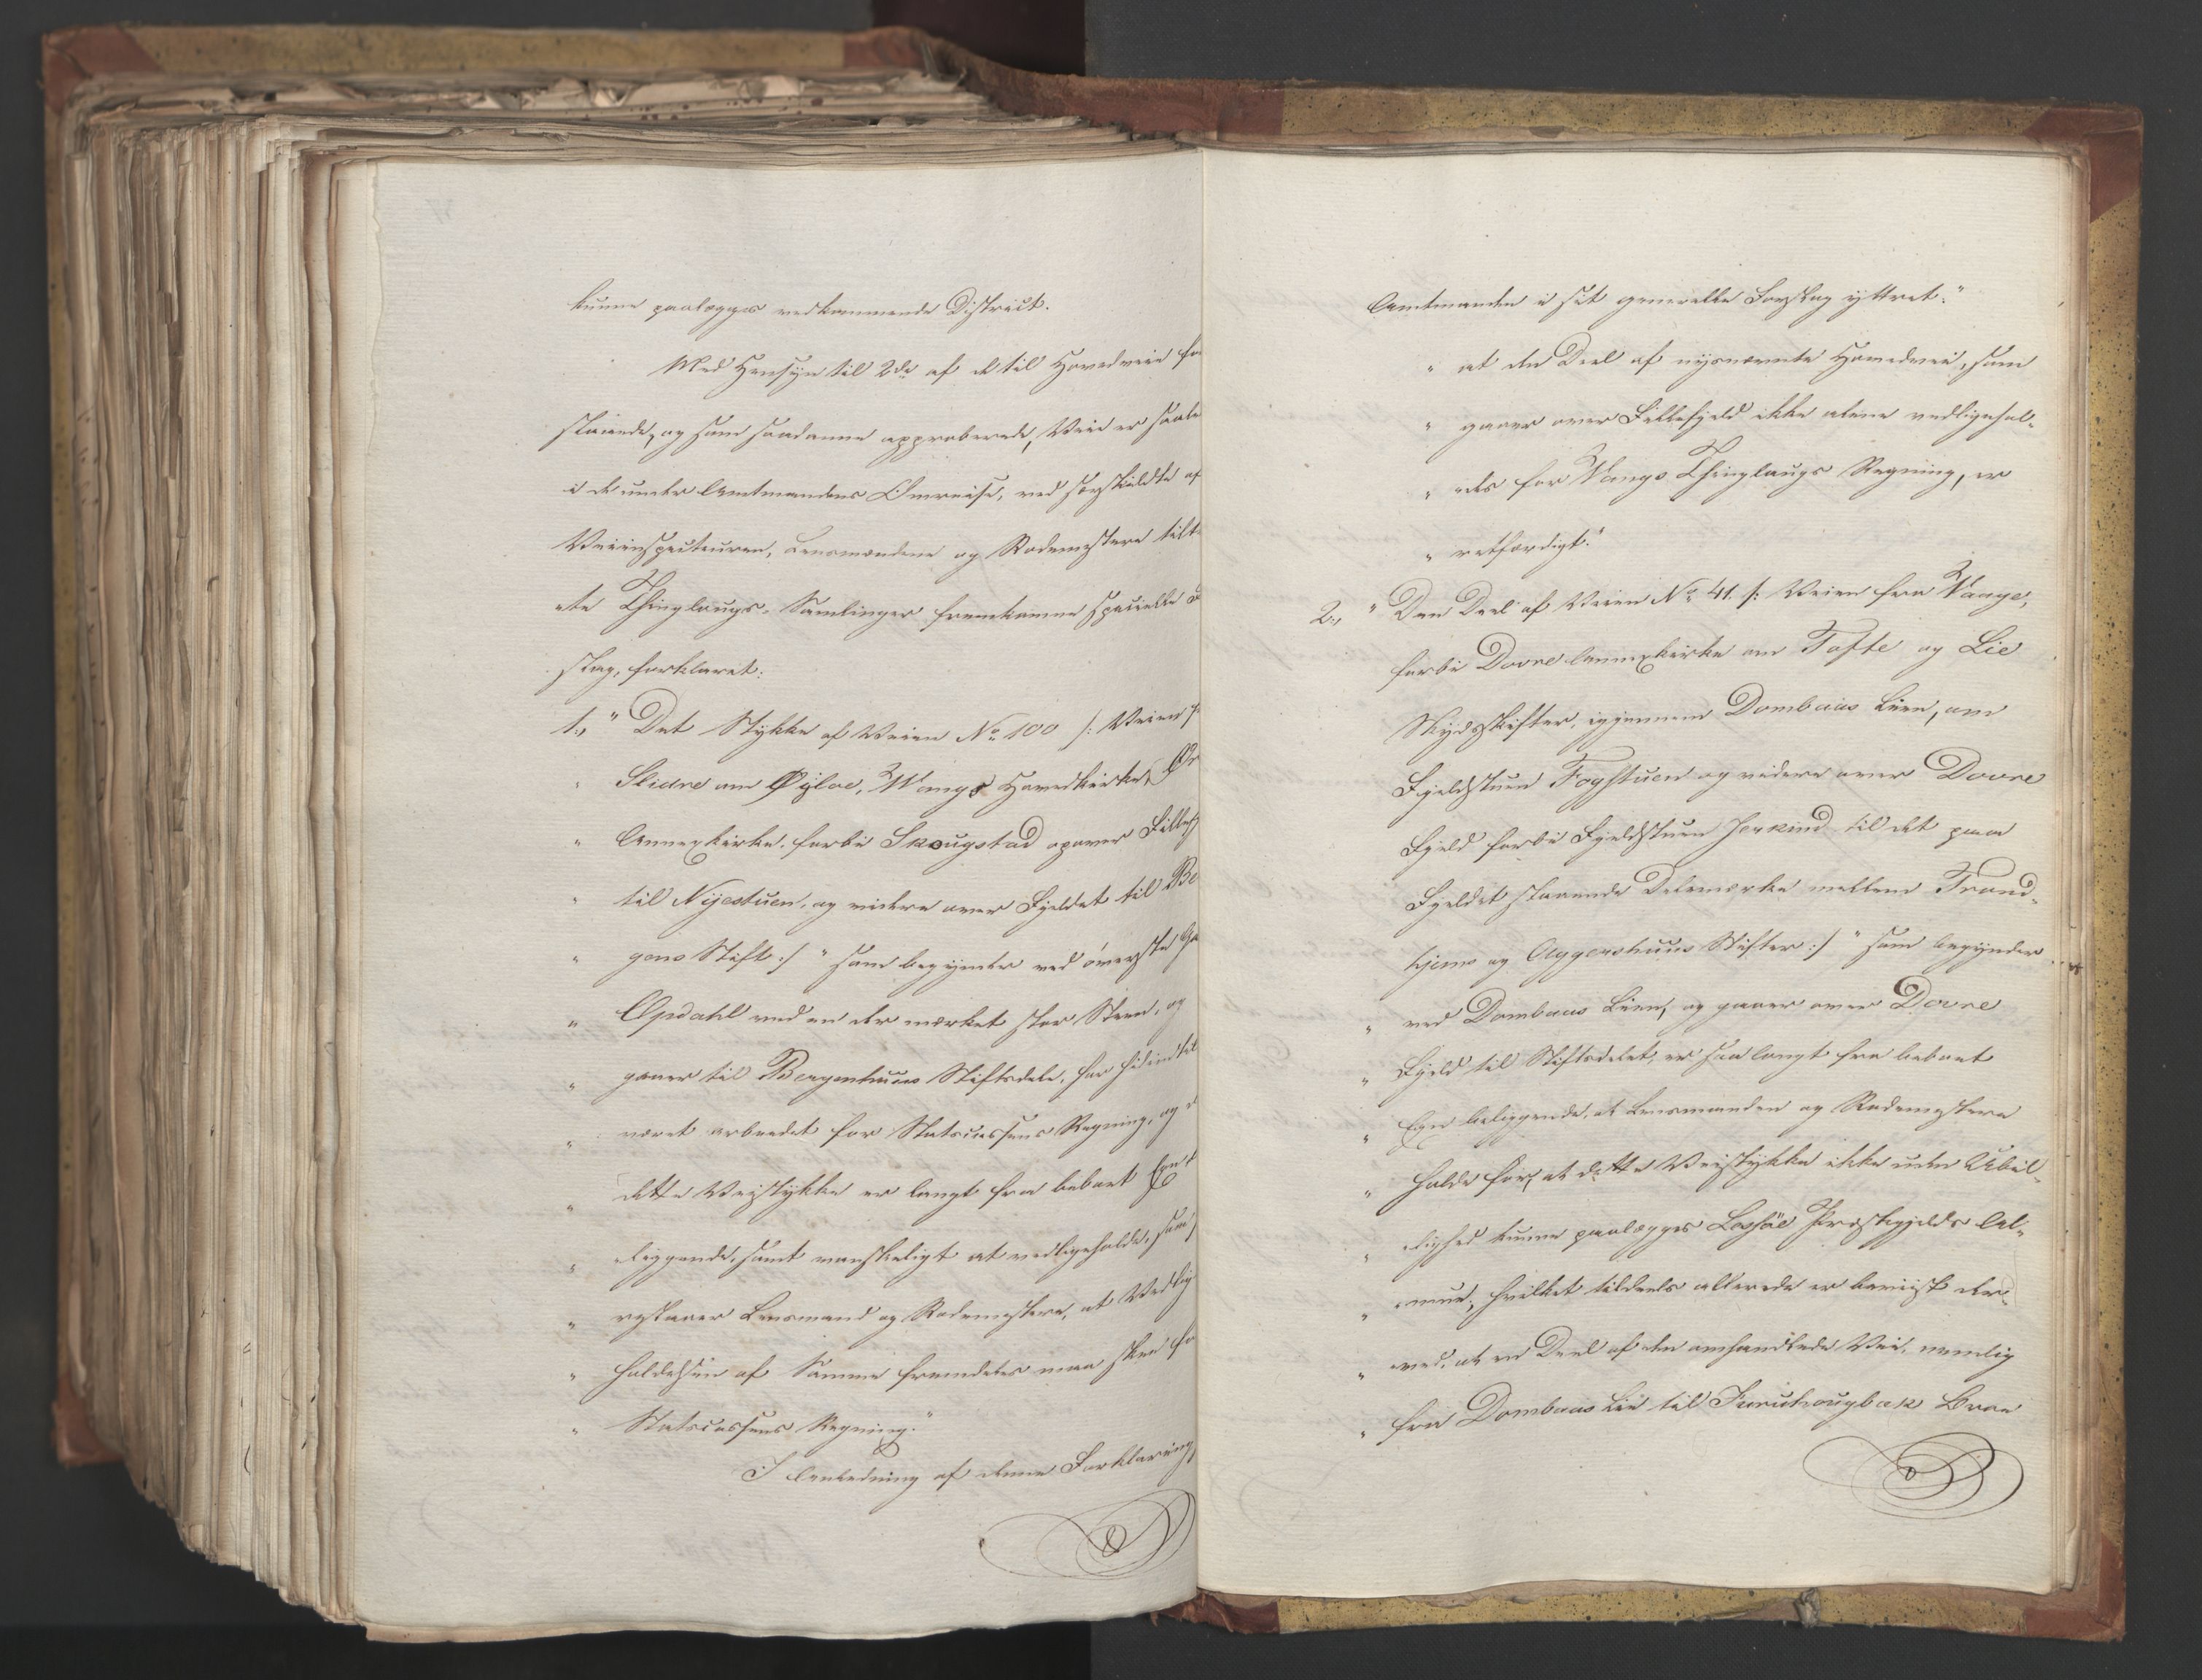 kunne paalægges vedkommende District.
Med Hensyn til 2de af de til Hovedveie fo
slaaede, og som saadanne approberede, Veie er saale
i de under Amtmandens Omreise, ved særskildte af
Veiinspecteuren, Lensmændene og Rodemestere tilt
te Thinglaugs-Samlinger fremkomne specielle F
slag, forklaret:
1., "Det Stykke af Veien No 100 /: Veien f
" Slidre om Øyloe, Wangs Hovedkirke, Ør
" Annexkirke, forbi Skougstad opover Fillefj
" til Nijestuen, og videre over Fjeldet til Be
" gens Stift :/ " som begynder ved øverste Ga
" Opdahl ved en der mærket stor Steen, og
" gaaer til Bergenhuus Stiftsdele, har hidindtil
" været arbeidet for Statscassens Regning, og d
" dette Veistykke er langt fra beboet Egn b
" liggende, samt vanskeligt at vedligeholde, saa
" paastaaer Lensmand og Rodemestere, at Vedlig
" holdelsen af Samme fremdeles maa skee fo
" Statscassens Regning."
I Anledning af denne Forklaring,
Amtmanden i sit generelle Forslag yttret:"
" at den Deel af nysnævnte Hovedvei, som
" gaaer over Fillefjeld ikke alene vedligehol-
" des for Wangs Thinglaugs Regning, er
" retfærdigt."
2., " Den Deel af Veien No 41. /: Veien fra Waage,
forbi Dovre Annexkirke om Tofte og Lie
Skydsskifter, igjennem Dombaas Lien, om
Fjeldstuen Fogstuen og videre over Dovre
Fjeld forbi Fjeldstuen Jerkind til det paa
Fjeldet staaende Delemærke mellem Trond-
hjems og Aggershuus Stifter :/ " som begynder
" ved Dombaas Lien, og gaaer over Dovre
" Fjeld til Stiftsdelet, er saa langt fra beboet
" Egn beliggende, at Lensmanden og Rodemestere
" holde for, at dette Veistykke ikke uden Ubil-
" lighed kunne paalægges Lessøe Præstegjelds Al-
" mue, hvilket tildeels allerede er beviist der-
" ved, at en Deel af den omhandlede Vei, nemlig
" fra Dombaas Lie til Furuhougbak Broe